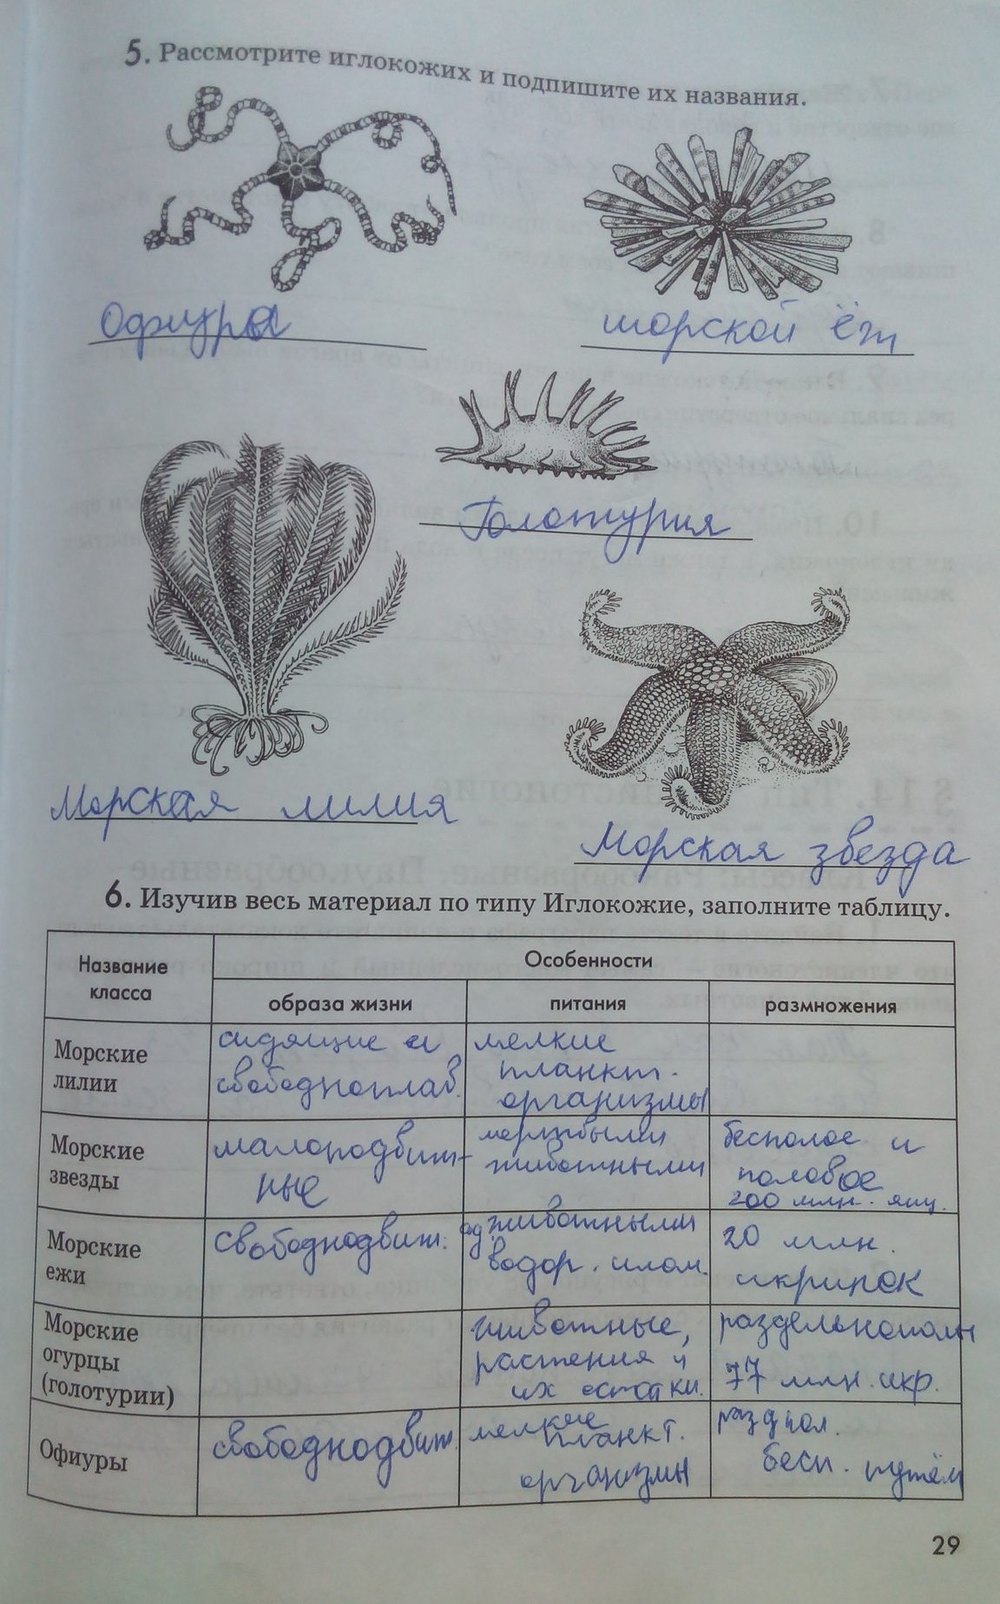 5. Рассмотрите иглокожих и подпишите их названия.
Офиура
морской ёж
Голотурия
Морская лилия
Морская звезда
6. Изучив весь материал по типу Иглокожие, заполните таблицу.
Название класса
Особенности
образа жизни
питания
размножения
Морские лилии
сидящие и
свободноплав.
мелкие
планкт.
организмы
Морские звезды
малоподвиж-
ные
мёртвыми
животными
бесполое и
половое
200 млн. яиц.
Морские ежи
свободнодвиж.
животными
водор. илом.
20 млн.
икринок
Морские огурцы (голотурии)
животные,
растения и
их остатки.
раздельнополы
77 млн. икр.
Офиуры
свободнодвиж.
мелкие
планкт.
организмы
разд пол.
бесп. путём
29